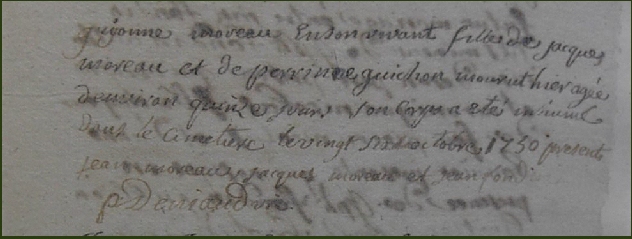 guyonne moreau En son vivant fille de jacques
moreau et de perrinne guichon mourut hier agée
denviron quinze jours son Corps a eté inhumé
dans le Cimetiere le vingt six octobre 1750 presents
jean moreau jacques moreau et jean